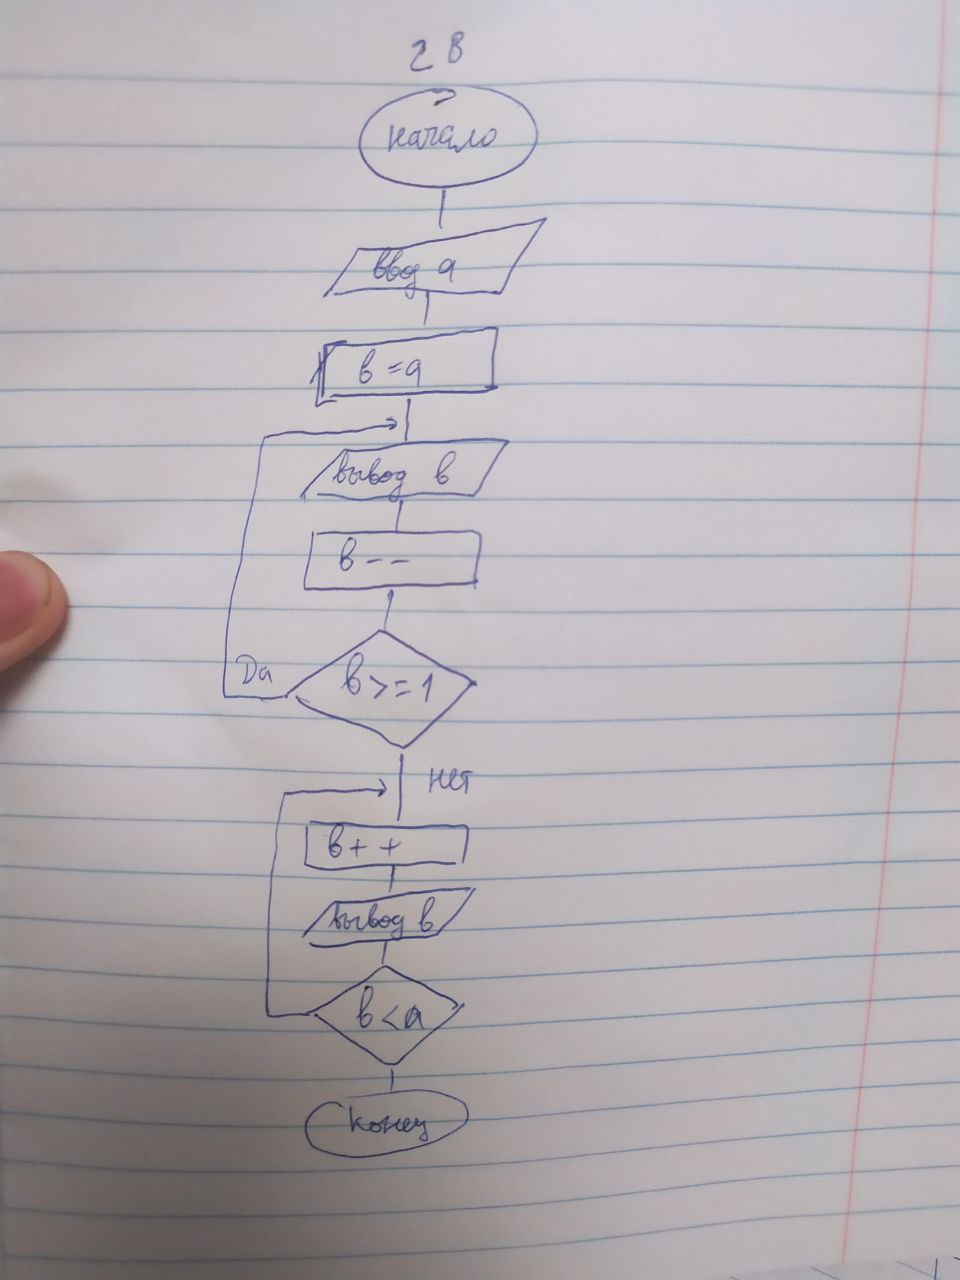 2 в
начало
ввод a
в = a
вывод в
в - -
в >= 1
Да
нет
в + +
вывод в
в < a
конец